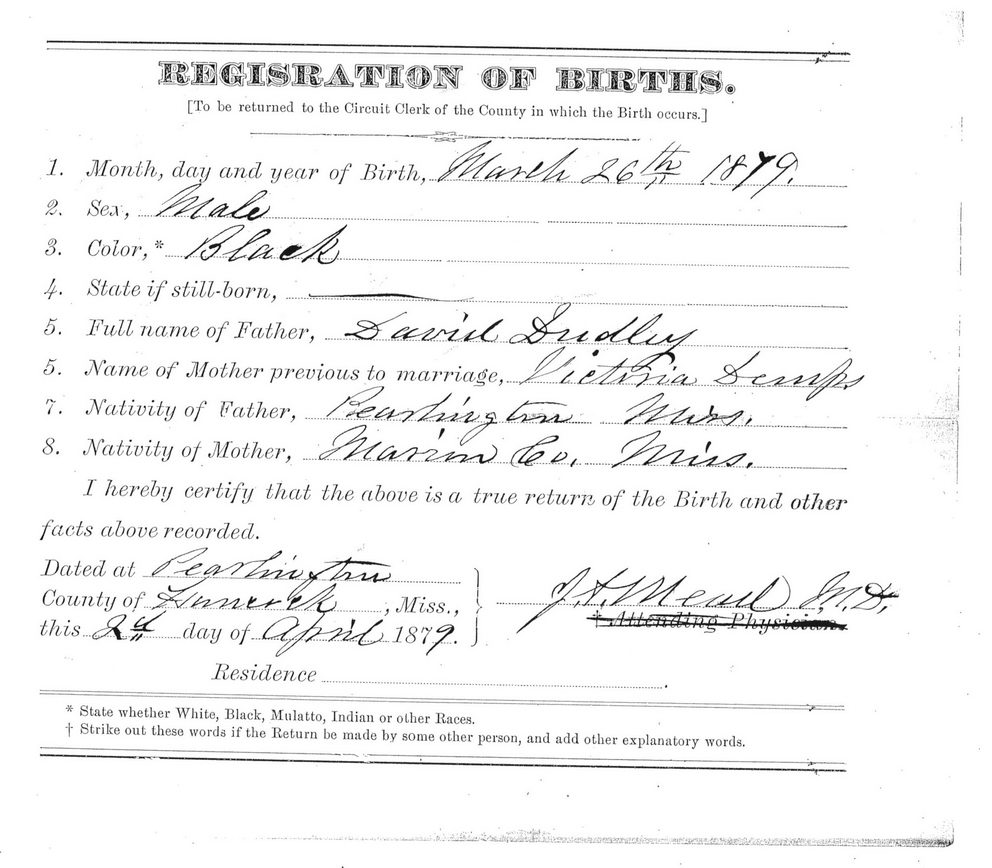 REGISRATION OF BIRTHS.
[To be returned to the Circuit Clerk of the County in which the Birth occurs.]
1. Month, day and year of Birth, March 26th 1879.
2. Sex, Male
3. Color,* Black
4. State if still-born,
5. Full name of Father, David Dudley
5. Name of Mother previous to marriage, Victoria Demps
7. Nativity of Father, Pearlington Miss.
8. Nativity of Mother, Marion Co. Miss.
I hereby certify that the above is a true return of the Birth and other
facts above recorded.
Dated at Pearlington
County of Hancock, Miss.,
this 2d day of April 1879.
J. A. Mead M.D.
† Attending Physician.
Residence
* State whether White, Black, Mulatto, Indian or other Races.
† Strike out these words if the Return be made by some other person, and add other explanatory words.